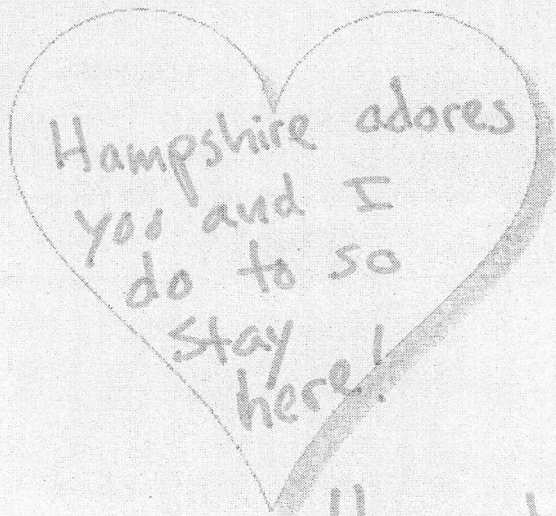 Hampshire adores
you and I
do to so
Stay
here!